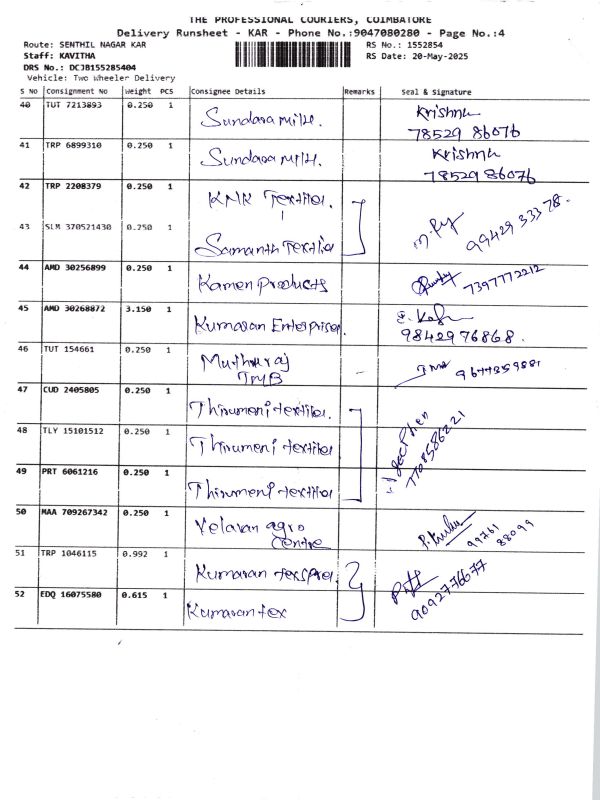 THE PROFESSIONAL COURIERS, COIMBATORE
Delivery Runsheet - KAR - Phone No.:9047080280 - Page No.:4
Route: SENTHIL NAGAR KAR RS No.: 1552854
Staff: KAVITHA RS Date: 20-May-2025
DRS No.: DCJB155285404
Vehicle: Two Wheeler Delivery
S NO Consignment No Weight PCS Consignee Details Remarks Seal & Signature
40 TUT 7213893 0.250 1 Sundara Mill. Krishna
78529 86076
41 TRP 6899310 0.250 1 Sundara Mill. Krishna
78529 86076
42 TRP 2208379 0.250 1 KNK Textiles.
43 SLM 370521430 0.250 1 Samanth Textiles 99429 33378.
44 AMD 30256899 0.250 1 Kamen Products 7397772212
45 AMD 30268872 3.150 1 Kumaran Enterprises
9842976868.
46 TUT 154661 0.250 1 Muthuraj
TMB
47 CUD 2405805 0.250 1 Thirumeni textiles.
48 TLY 15101512 0.250 1 Thirumeni textiles
49 PRT 6061216 0.250 1 Thirumeni textiles
50 MAA 709267342 0.250 1 Velavan agro
centre
99761
88099
51 TRP 1046115 0.992 1 Kumaran
52 EDQ 16075580 0.615 1 Kumaran tex 9092776677